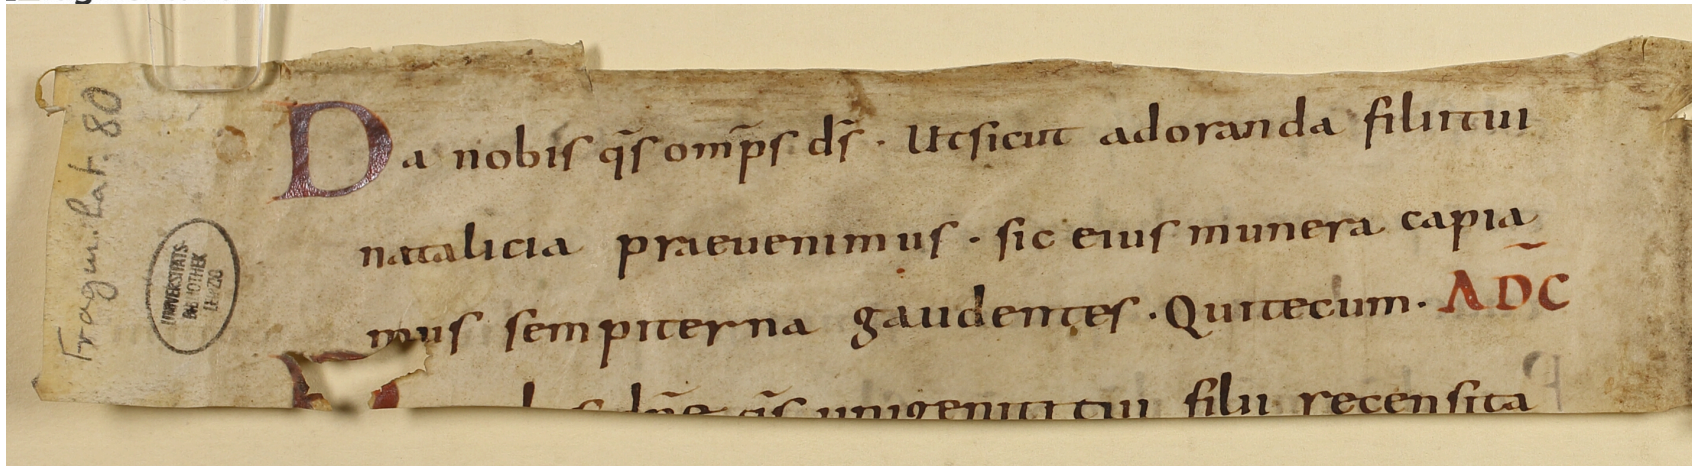 Fragm. Lat. 80
UNIVERSITÄTS
BIBLIOTHEK
LEIPZIG
Da nobis q̄s om̄ps d̄s · Ut sicut adoranda filii tui
natalicia praeuenimus · sic eius munera capia
mus sempiterna gaudentes · Qui tecum · AD C̄
b s dn̄e q̄s unigeniti tui filii recensita